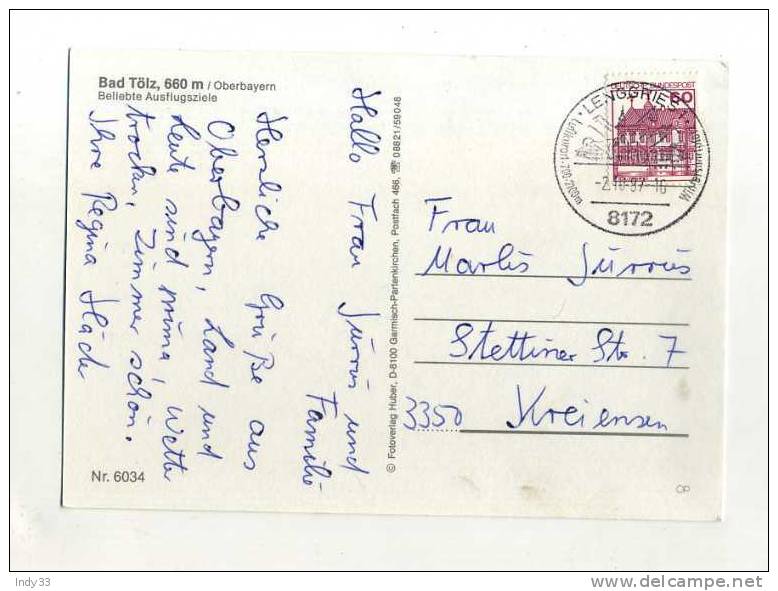 Bad Tölz, 660 m / Oberbayern
Beliebte Ausflugsziele
Hallo Frau Jürrus und
Familie
Herzliche Grüße aus
Oberbayern, Land und
Leute sind prima, Wetter
trocken, Zimmer schön.
Ihre Regina
Nr. 6034
© Fotoverlag Huber, D-8100 Garmisch-Partenkirchen, Postfach 466, ☏ 08821/59048
DEUTSCHE BUNDESPOST
60
LENGGRIES
8172
Frau
Marlis Jürrus
Stettiner Str. 7
3350 Kreiensen
8
Indy33
delcampe.net